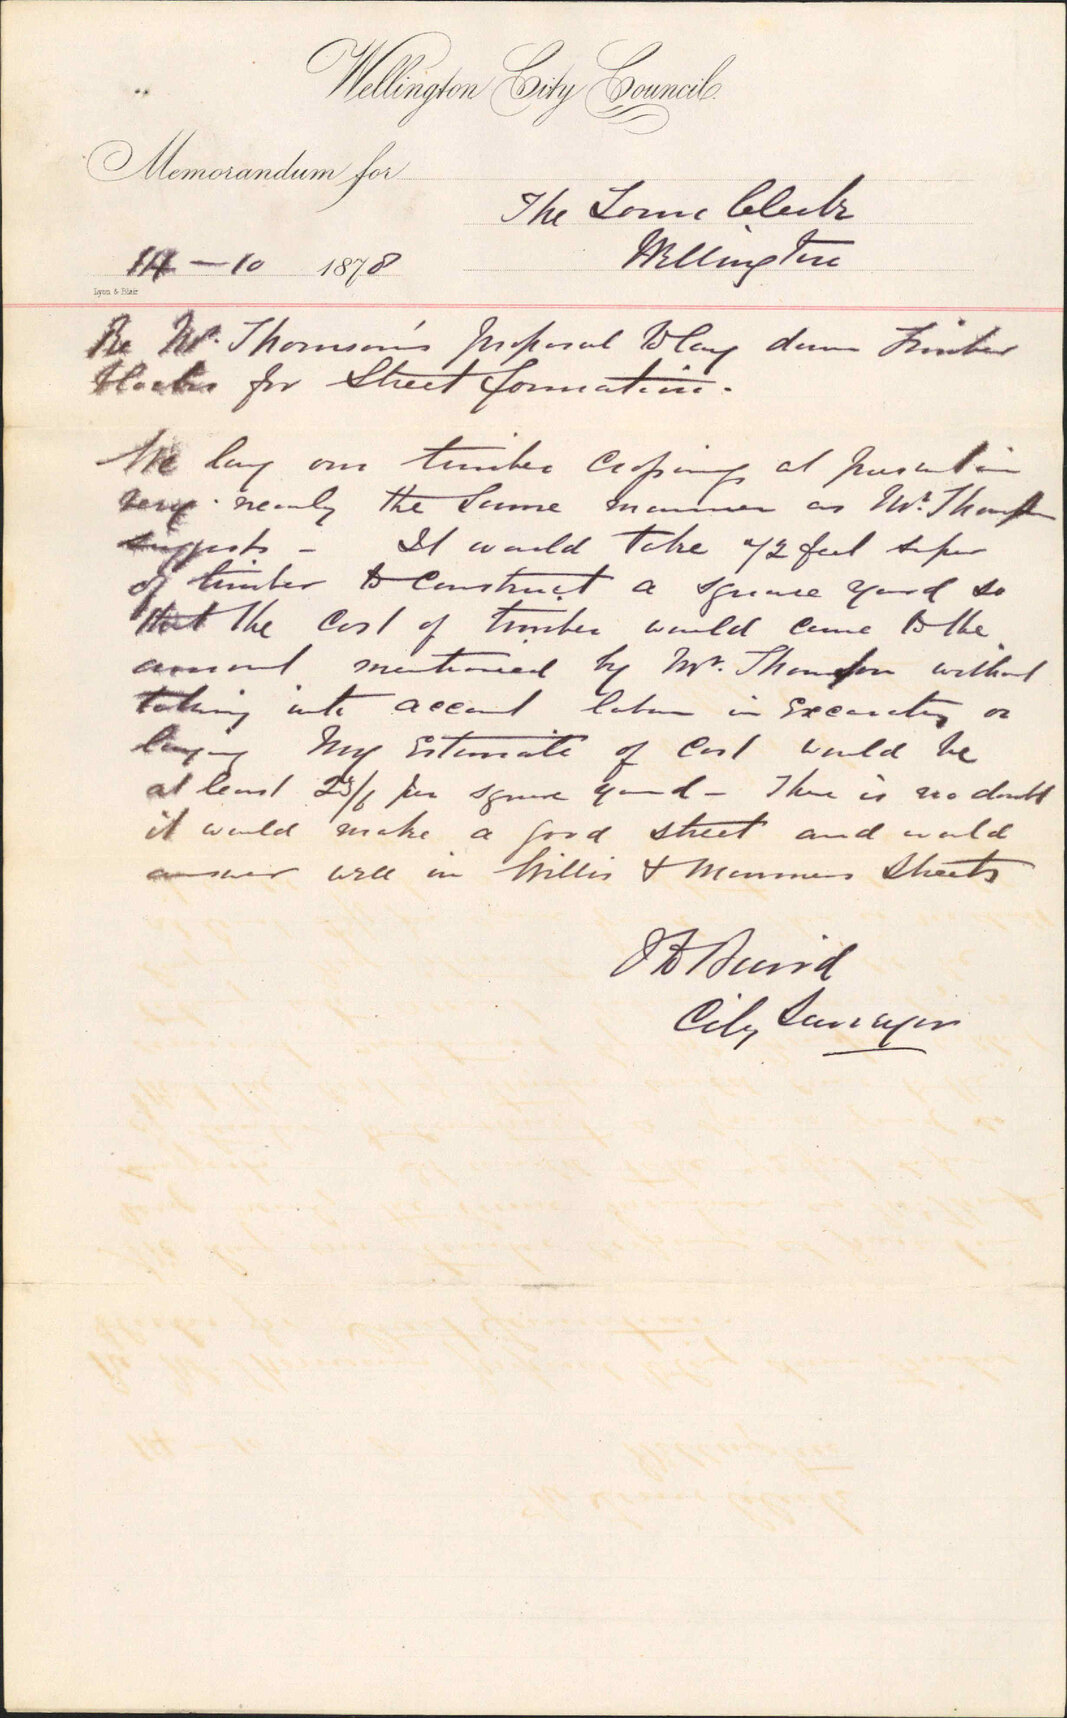 Wellington City Council.
Memorandum for
The Town Clerk
Wellington
14 – 10 1878
Lyon & Blair
Re Mr. Thomson's proposal to lay down Timber
blocks for Street formation.
We lay our timber crossings at present in
very nearly the same manner as Mr. Thomson
suggests – It would take 72 feet super
of timber to construct a square yard so
that the cost of timber would come to the
amount mentioned by Mr. Thomson without
taking into account labor in Excavating or
laying My Estimate of cost would be
at least 25/6 per square yard – There is no doubt
it would make a good street and would
answer well in Willis & Manners Streets
Baird
City Surveyor